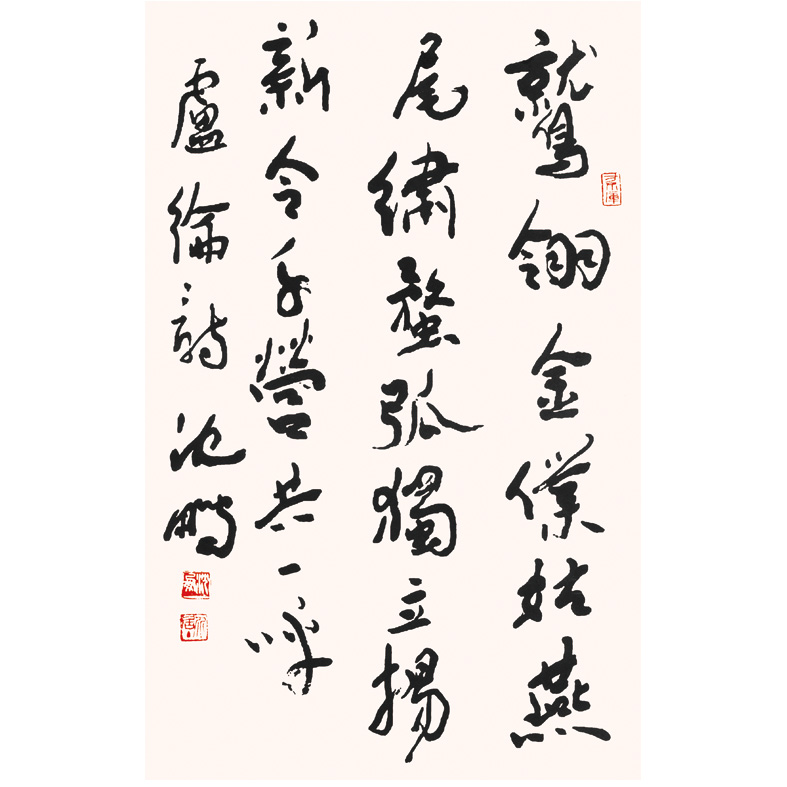 鷲翎金僕姑燕
尾繡蝥弧獨立揚
新令千營共一呼
盧綸詩沈鵬